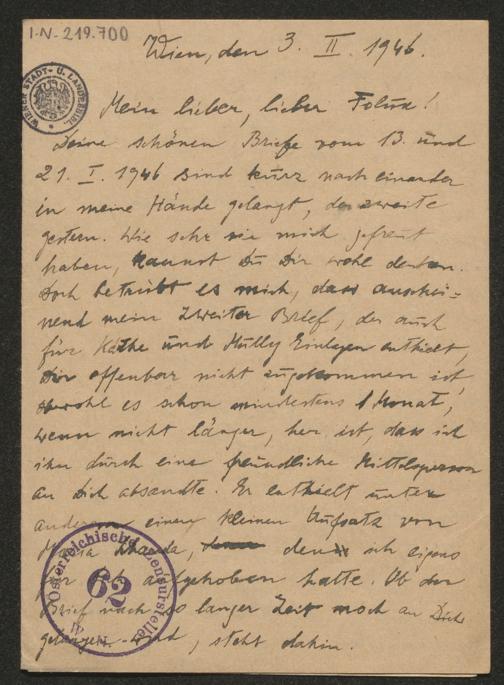 I-N-219.700
Wien, den 3. II. 1946.
WIENER STADT- U. LANDESBIBL.
Mein lieber, lieber Felix!
Deine schönen Briefe vom 13. und
21. I. 1946 sind kurz nach einander
in meine Hände gelangt, der zweite
gestern. Wie sehr sie mich gefreut
haben, kannst Du Dir wohl denken.
Doch betrübt es mich, dass anschei=
nend mein zweiter Brief, der auch
für Käthe und Mully Einlagen enthielt,
Dir offenbar nicht zugekommen ist,
obwohl es schon mindestens 1 Monat,
wenn nicht länger, her ist, dass ich
ihn durch eine freundliche Mittelsperson
an Dich absandte. Er enthielt unter
anderem einen kleinen Aufsatz von
den ich eigens
für aufgehoben hatte. Ob der
Brief nach so langer Zeit noch an Dich
gelangen wird, steht dahin.
Österreichische Zensurstelle
62